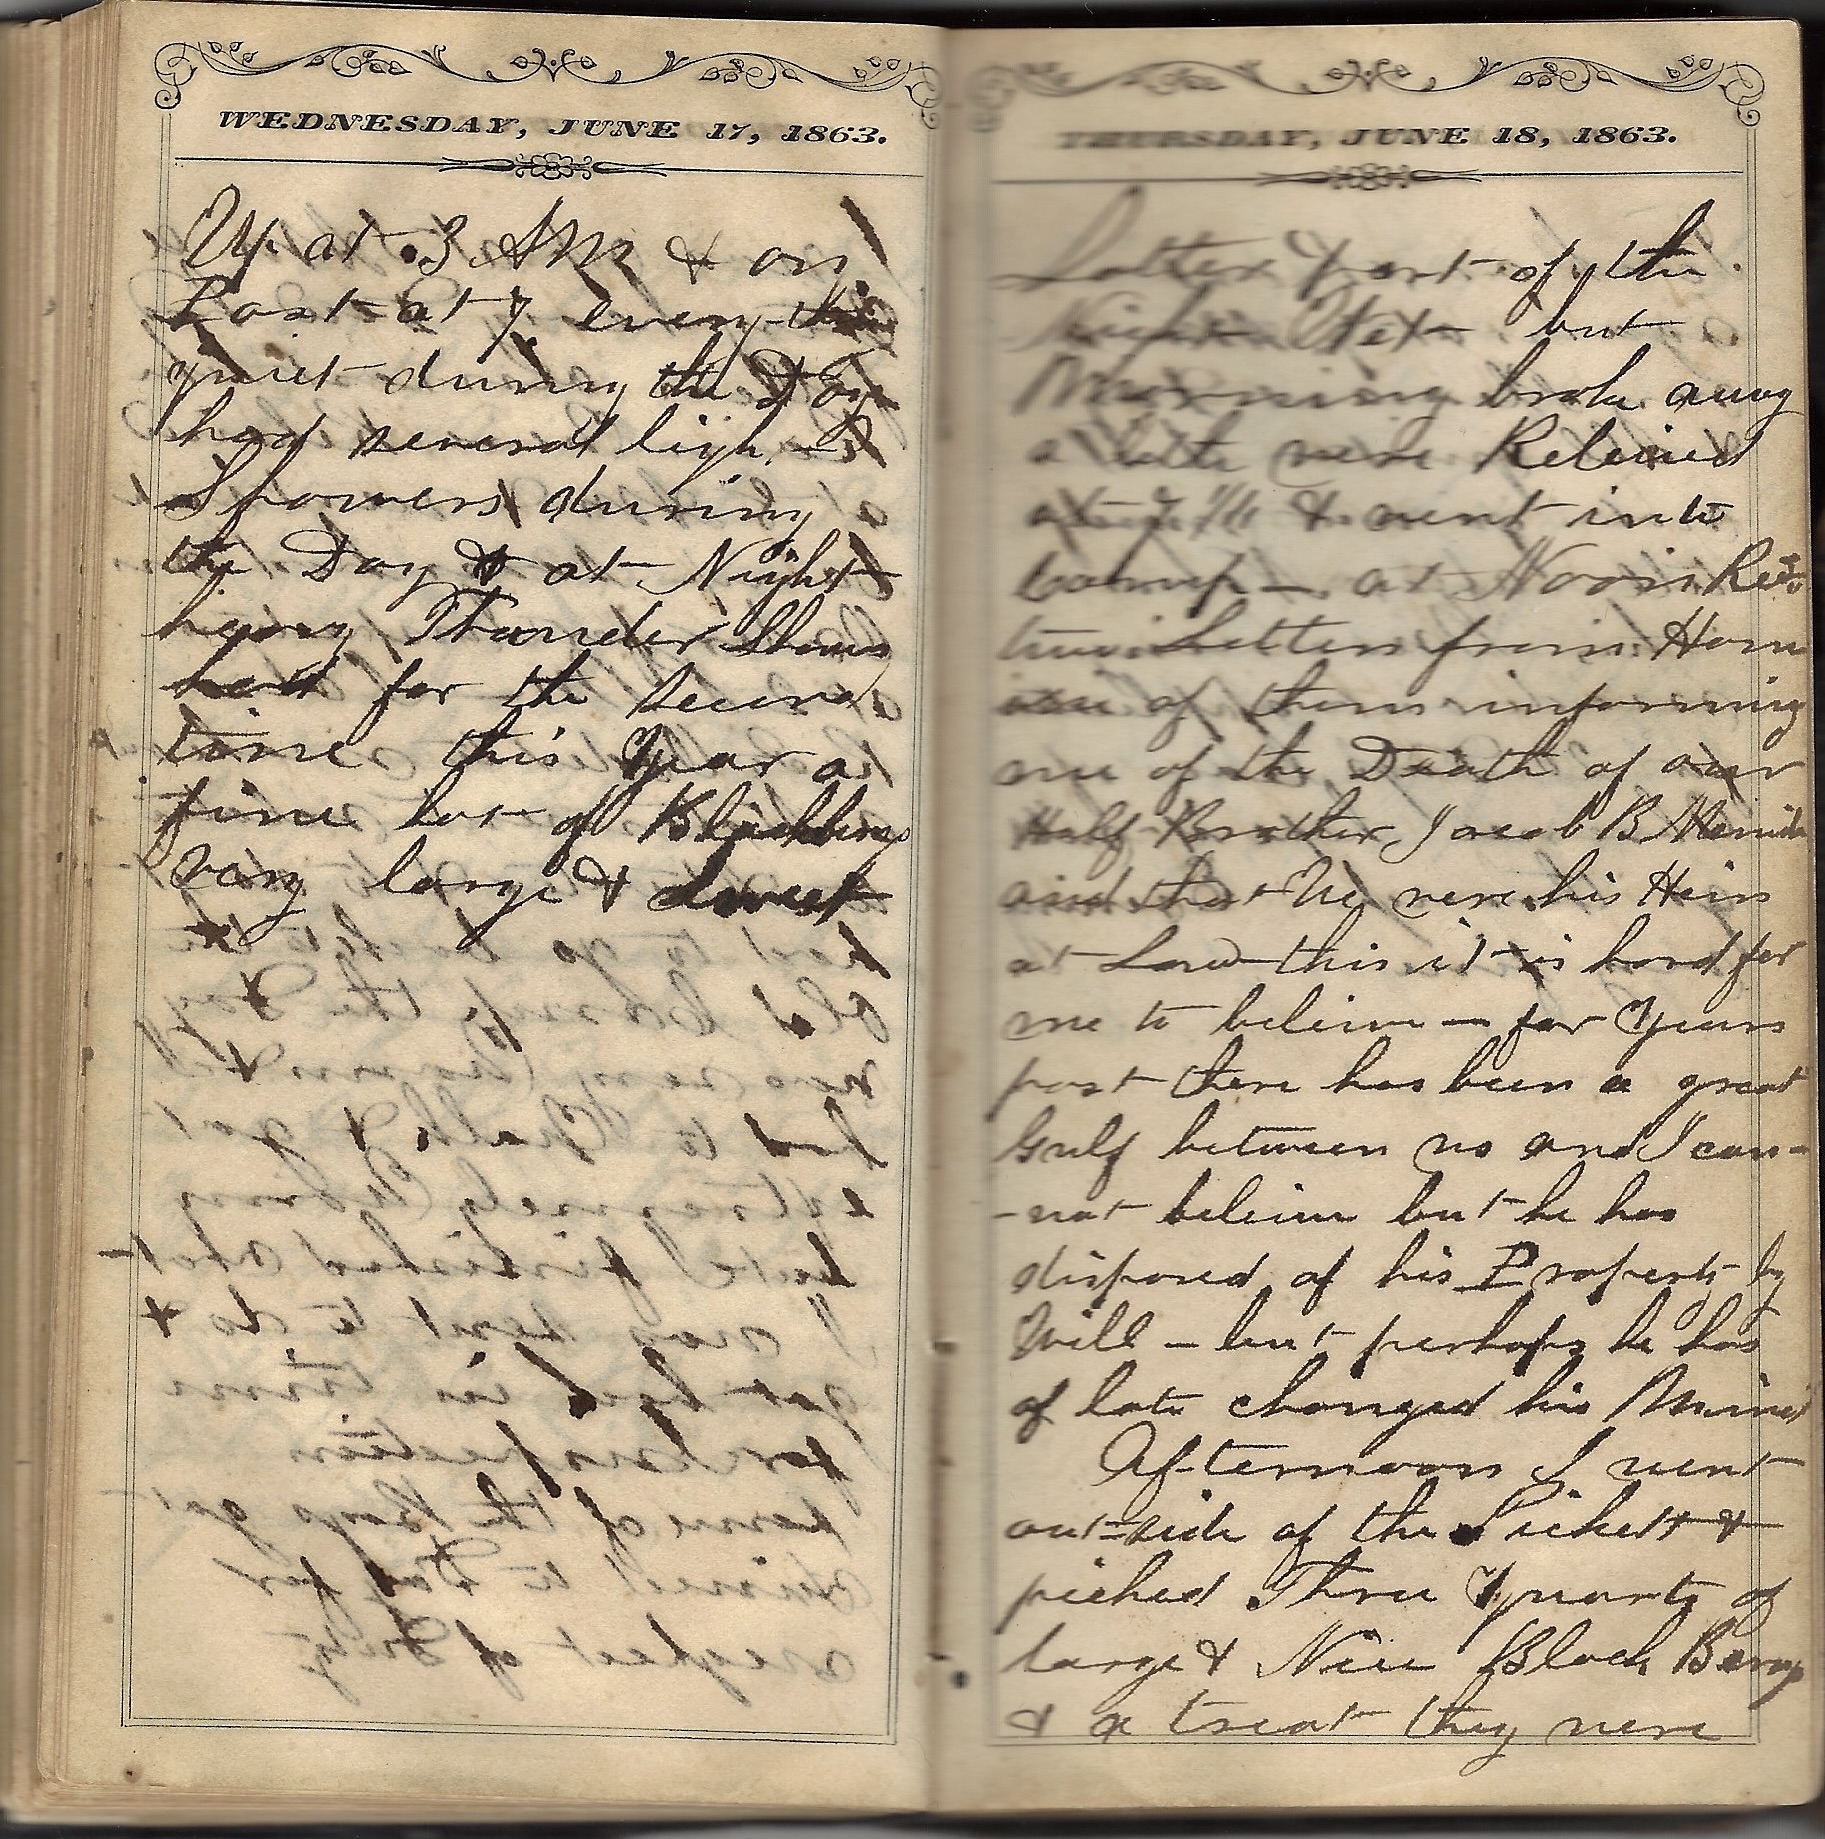 WEDNESDAY, JUNE 17, 1863.
Up at 3 AM & on
Post at 7. every thing
quiet during the Day
had several ligh
Showers during
the Day & at Night
heavy Thunder Shower
had for the second
time this Year a
fine lot of Blackberrys
very large & sweet
THURSDAY, JUNE 18, 1863.
Latter part of the
Night Wet but
Morning broke away
a little were Releived
at 7 & went into
Camp — at Noon Rec'd
two Letters from Home
one of them informing
me of the Death of our
Half Brother Jacob B
and that We were his Heirs
at Law this it is hard for
me to beleive — for Years
past there has been a great
Gulf between us and I can-
-not beleive but he has
disposed of his Property by
Will — but perhaps he has
of late changed his Mind
Afternoon I went
out=side of the Pickets &
picked Three Quarts of
large & Nice Black Berrys
& a treat they were